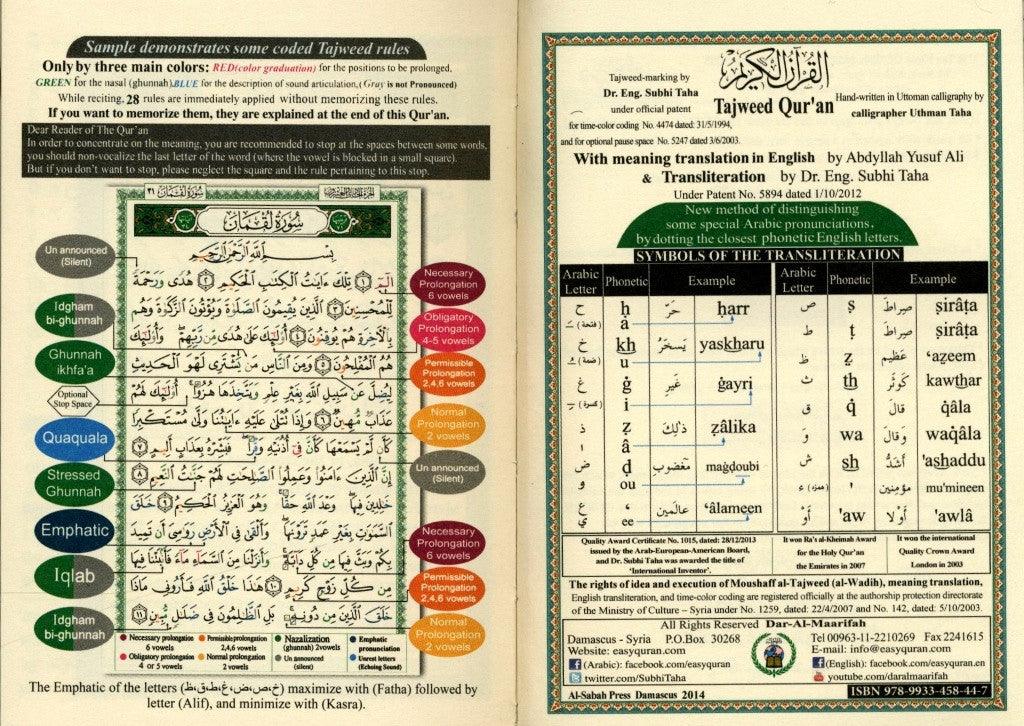 Sample demonstrates some coded Tajweed rules
Only by three main colors: RED(color graduation) for the positions to be prolonged,
GREEN for the nasal (ghunnah),BLUE for the description of sound articulation,( Gray is not Pronounced)
While reciting, 28 rules are immediately applied without memorizing these rules.
If you want to memorize them, they are explained at the end of this Qur'an.
Dear Reader of The Qur'an
In order to concentrate on the meaning, you are recommended to stop at the spaces between some words,
you should non-vocalize the last letter of the word (where the vowel is blocked in a small square).
But if you don't want to stop, please neglect the square and the rule pertaining to this stop.
سُورَةُ لُقْمَان ٣١
سُورَةُ لُقْمَان
بِسْمِ اللَّهِ الرَّحْمَٰنِ الرَّحِيمِ
الٓمٓ ١ تِلْكَ ءَايَٰتُ الْكِتَٰبِ الْحَكِيمِ ٢ هُدًى وَرَحْمَةً
لِّلْمُحْسِنِينَ ٣ الَّذِينَ يُقِيمُونَ الصَّلَوٰةَ وَيُؤْتُونَ الزَّكَوٰةَ وَهُم
بِالْءَاخِرَةِ هُمْ يُوقِنُونَ ٤ أُوْلَٰٓئِكَ عَلَىٰ هُدًى مِّن رَّبِّهِمْ وَأُوْلَٰٓئِكَ
هُمُ الْمُفْلِحُونَ ٥ وَمِنَ النَّاسِ مَن يَشْتَرِى لَهْوَ الْحَدِيثِ
لِيُضِلَّ عَن سَبِيلِ اللَّهِ بِغَيْرِ عِلْمٍ وَيَتَّخِذَهَا هُزُوًا أُوْلَٰٓئِكَ لَهُمْ
عَذَابٌ مُّهِينٌ ٦ وَإِذَا تُتْلَىٰ عَلَيْهِ ءَايَٰتُنَا وَلَّىٰ مُسْتَكْبِرًا
كَأَن لَّمْ يَسْمَعْهَا كَأَنَّ فِىٓ أُذُنَيْهِ وَقْرًا فَبَشِّرْهُ بِعَذَابٍ أَلِيمٍ ٧
إِنَّ الَّذِينَ ءَامَنُوا وَعَمِلُوا الصَّٰلِحَٰتِ لَهُمْ جَنَّٰتُ النَّعِيمِ ٨
خَٰلِدِينَ فِيهَا وَعْدَ اللَّهِ حَقًّا وَهُوَ الْعَزِيزُ الْحَكِيمُ ٩ خَلَقَ
السَّمَٰوَٰتِ بِغَيْرِ عَمَدٍ تَرَوْنَهَا وَأَلْقَىٰ فِى الْأَرْضِ رَوَٰسِىَ أَن تَمِيدَ
بِكُمْ وَبَثَّ فِيهَا مِن كُلِّ دَآبَّةٍ وَأَنزَلْنَا مِنَ السَّمَآءِ مَآءً فَأَنۢبَتْنَا فِيهَا
مِن كُلِّ زَوْجٍ كَرِيمٍ ١٠ هَٰذَا خَلْقُ اللَّهِ فَأَرُونِى مَاذَا
خَلَقَ الَّذِينَ مِن دُونِهِ بَلِ الظَّٰلِمُونَ فِى ضَلَٰلٍ مُّبِينٍ ١١
Un announced
(Silent)
Idgham
bi-ghunnah
Ghunnah
ikhfa'a
Optional
Stop Space
Quaquala
Stressed
Ghunnah
Emphatic
Iqlab
Idgham
bi-ghunnah
Necessary
Prolongation
6 vowels
Obligatory
Prolongation
4-5 vowels
Permissible
Prolongation
2,4,6 vowels
Normal
Prolongation
2 vowels
Un announced
(Silent)
Necessary
Prolongation
6 vowels
Permissible
Prolongation
2,4,6 vowels
Normal
Prolongation
2 vowels
Necessary prolongation 6 vowels
Permissible prolongation 2,4,6 vowels
Nazalization (ghunnah) 2vowels
Emphatic pronunciation
Obligatory prolongation 4 or 5 vowels
Normal prolongation 2 vowels
Un announced (silent)
Unrest letters (Echoing Sound)
The Emphatic of the letters (خ،ص،ض،غ،ط،ق،ظ) maximize with (Fatha) followed by
letter (Alif), and minimize with (Kasra).
القرآن الكريم
Tajweed Qur'an
Tajweed-marking by
Dr. Eng. Subhi Taha
under official patent
for time-color coding No. 4474 dated: 31/5/1994,
and for optional pause space No. 5247 dated 3/6/2003.
Hand-written in Uttoman calligraphy by
calligrapher Uthman Taha
With meaning translation in English by Abdyllah Yusuf Ali
& Transliteration by Dr. Eng. Subhi Taha
Under Patent No. 5894 dated 1/10/2012
New method of distinguishing
some special Arabic pronunciations,
by dotting the closest phonetic English letters.
SYMBOLS OF THE TRANSLITERATION
Arabic Letter Phonetic Example Arabic Letter Phonetic Example
ح ḥ حَرّ ḥarr ص ṣ صِراطَ ṣirâṭa
(فتحة) ـَ a ط ṭ صِراطَ ṣirâṭa
خ kh يَسخَرُ yaskharu ظ ẓ عَظِيم ‘aẓeem
(ضمة) ـُ u ث th كَوثَر kawthar
غ ġ غَير ġayri ق q̇ قالَ q̇âla
(كسرة) ـِ i و wa وَقالَ waq̇âla
ذ ż ذٰلِكَ żâlika ش sh أَشَدُّ 'ashaddu
ا â
ض ḍ مَغضوب maġdoubi
و ou (همزة) ء ' مؤمنين mu'mineen
ع ‘ عالَمين ‘âlameen أَوْ 'aw أَوْلا 'awlâ
ي ee
Quality Award Certificate No. 1015, dated: 28/12/2013
issued by the Arab-European-American Board,
and Dr. Subhi Taha was awarded the title of
'International Inventor'.
It won Ra's al-Kheimah Award
for the Holy Qur'an
the Emirates in 2007
It won the international
Quality Crown Award
London in 2003
The rights of idea and execution of Moushaff al-Tajweed (al-Wadih), meaning translation,
English transliteration, and time-color coding are registered officially at the authorship protection directorate
of the Ministry of Culture – Syria under No. 1259, dated: 22/4/2007 and No. 142, dated: 5/10/2003.
All Rights Reserved Dar-Al-Maarifah
Damascus - Syria P.O.Box 30268
Website: easyquran.com
(Arabic): facebook.com/easyquran
twitter.com/SubhiTaha
Tel 00963-11-2210269 Fax 2241615
E-mail: info@easyquran.com
(English): facebook.com/easyquran.en
youtube.com/daralmaarifah
Al-Sabah Press Damascus 2014
ISBN 978-9933-458-44-7